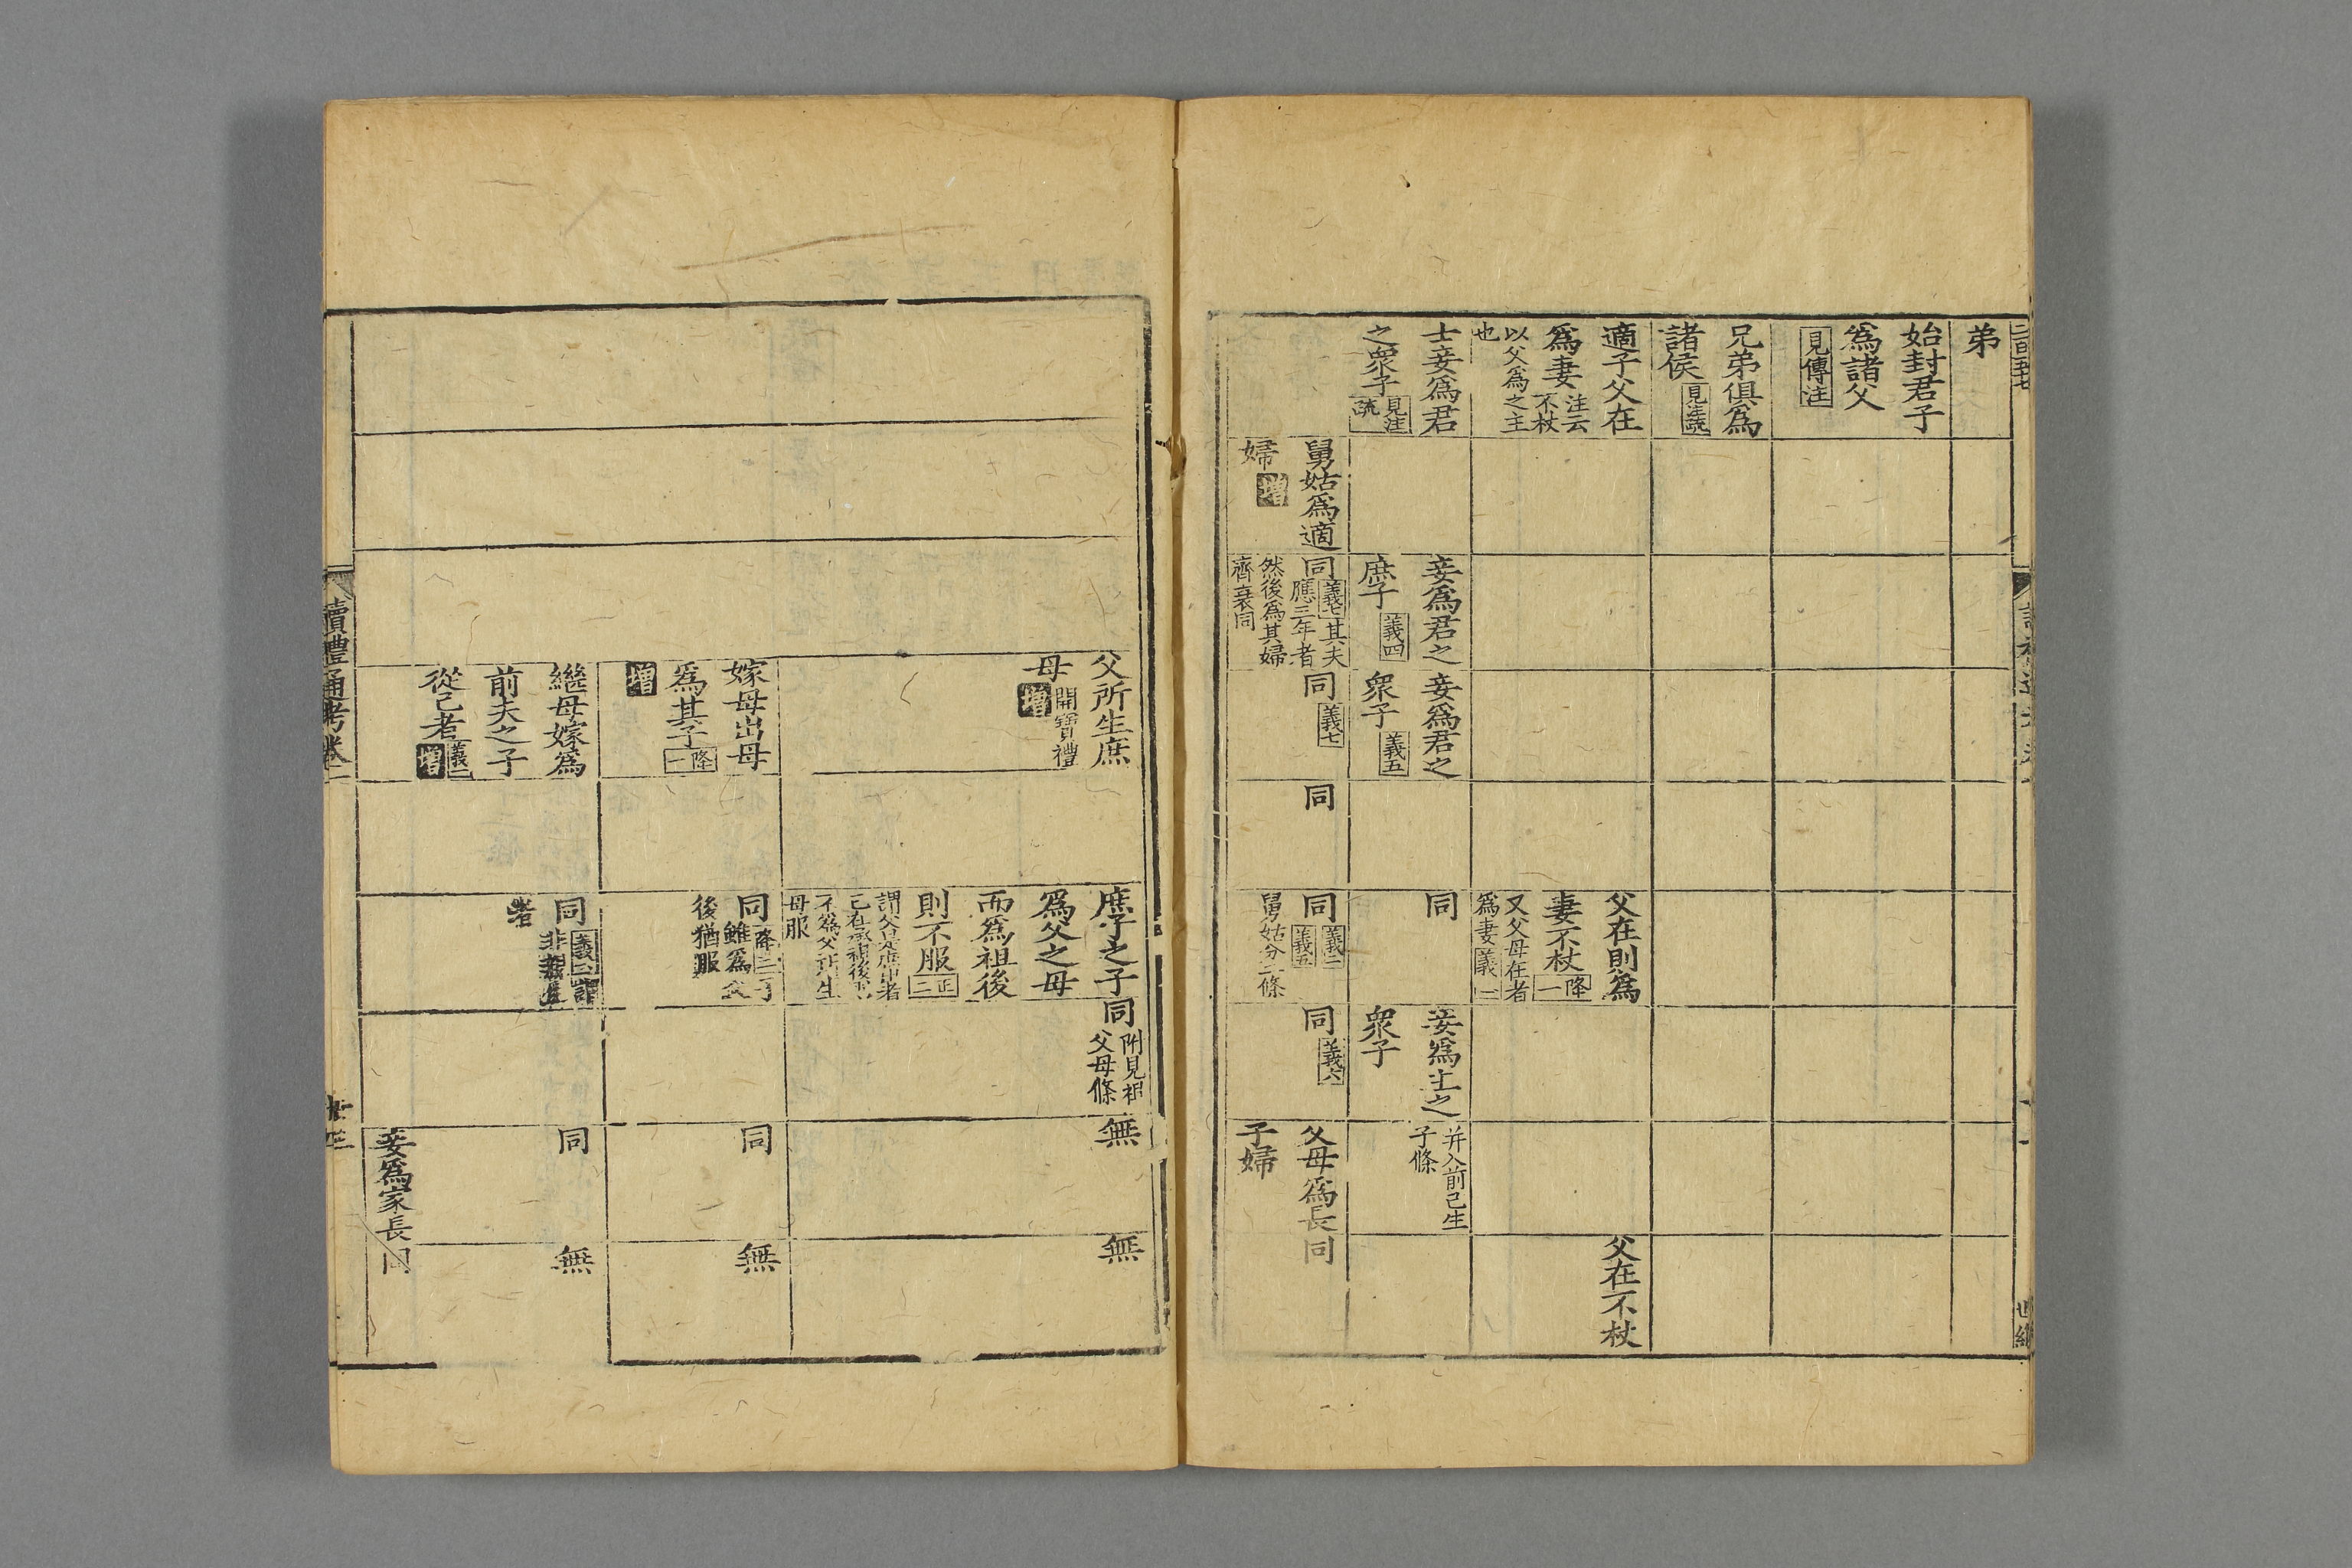 弟
始封君子
爲諸父
見傳注
兄弟俱爲
諸侯見注疏
適子父在
爲妻注云不杖
以父爲之主
也
士妾爲君
之衆子見注疏
舅姑爲適
婦增
妾爲君之
庶子義四
同義七其夫
應三年者
然後爲其婦
齊衰同
妾爲君之
衆子義五
同義七
同
父在則爲
妻不杖降一
又父母在者
爲妻義一
同
同義二義五
舅姑分二條
妾爲士之
衆子
同義六
并入前己生
子條
父母爲長
子婦
父在不杖
同
父所生庶
母開寶禮增
嫁母出母
爲其子降一
增
繼母嫁爲
前夫之子
從己者義二增
庶子之子
爲父之母
而爲祖後
則不服正二
不爲父所生
母服
同
雖爲父
後猶服
同
者
同附見祖
父母條
無
同
同
妾爲家長
無
無
無
同
讀禮通考卷二